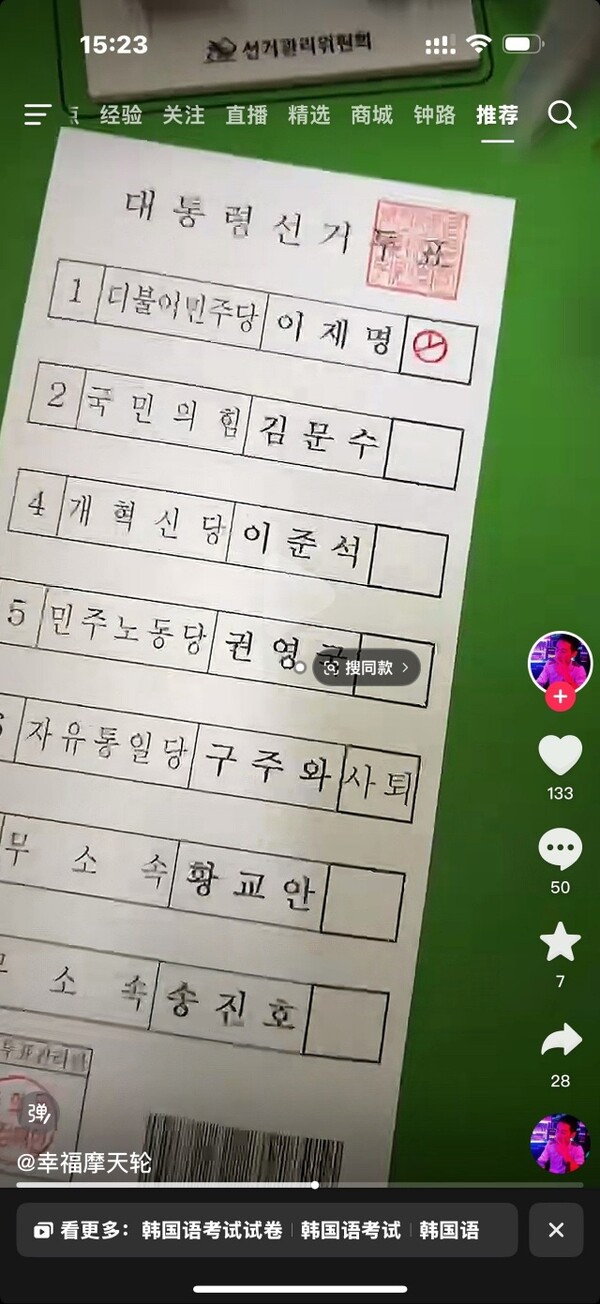 15:23
선거관리위원회
经验 关注 直播 精选 商城 钟路 推荐
대통령선거
투표
1 더불어민주당 이재명
2 국민의힘 김문수
4 개혁신당 이준석
5 민주노동당 권영
搜同款
자유통일당 구주와 사퇴
무소속 황교안
소속 송진호
133
50
7
28
弹
@幸福摩天轮
看更多： 韩国语考试试卷 | 韩国语考试 | 韩国语